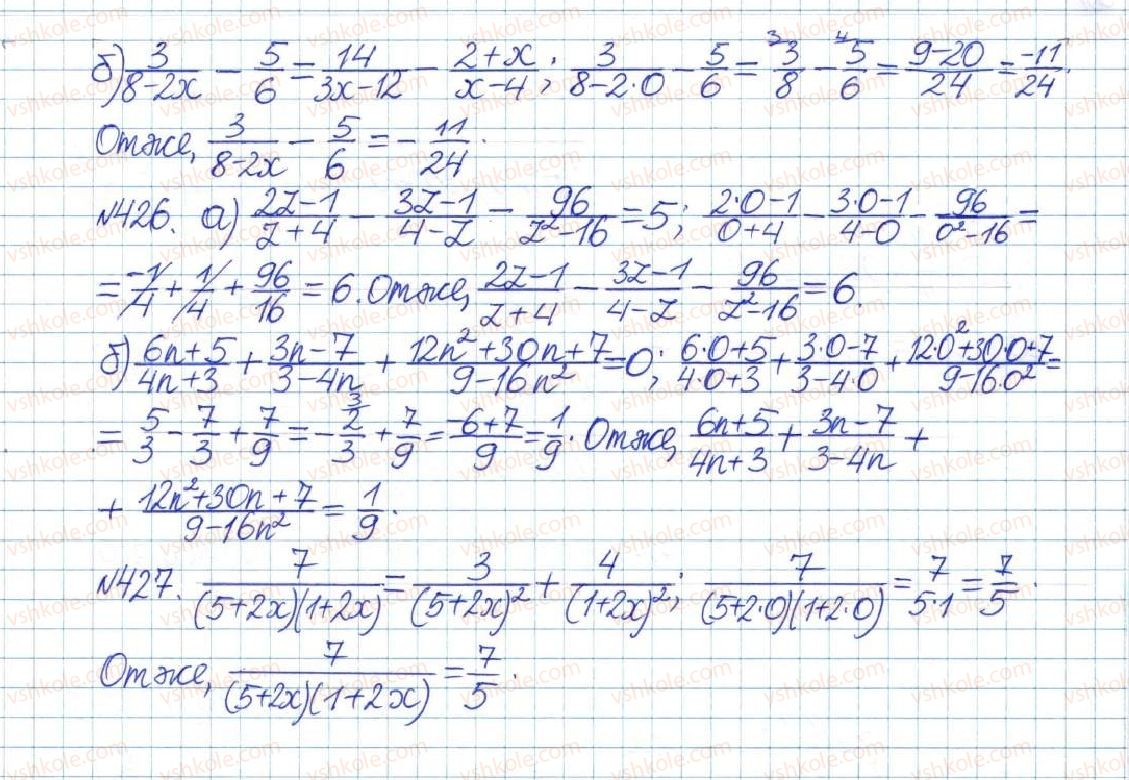 б) 3/(8-2x) - 5/6 = 14/(3x-12) - (2+x)/(x-4); 3/(8-2·0) - 5/6 = ³3/8 - ⁴5/6 = (9-20)/24 = -11/24.
Отже, 3/(8-2x) - 5/6 = - 11/24.
№426. а) (2z-1)/(z+4) - (3z-1)/(4-z) - 96/(z²-16) = 5; (2·0-1)/(0+4) - (3·0-1)/(4-0) - 96/(0²-16) =
= -1/4 + 1/4 + 96/16 = 6. Отже, (2z-1)/(z+4) - (3z-1)/(4-z) - 96/(z²-16) = 6.
б) (6n+5)/(4n+3) + (3n-7)/(3-4n) + (12n²+30n+7)/(9-16n²) = 0; (6·0+5)/(4·0+3) + (3·0-7)/(3-4·0) + (12·0²+30·0+7)/(9-16·0²) =
= 5/3 - 7/3 + 7/9 = - ³2/3 + 7/9 = (-6+7)/9 = 1/9. Отже, (6n+5)/(4n+3) + (3n-7)/(3-4n) +
+ (12n²+30n+7)/(9-16n²) = 1/9.
№427. 7/((5+2x)(1+2x)) = 3/(5+2x)² + 4/(1+2x)²; 7/((5+2·0)(1+2·0)) = 7/(5·1) = 7/5.
Отже, 7/((5+2x)(1+2x)) = 7/5.